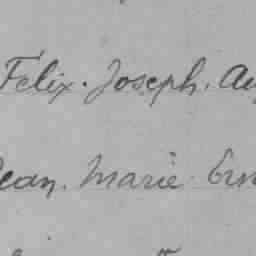 Félix. Joseph. Au
Jean. Marie Ern